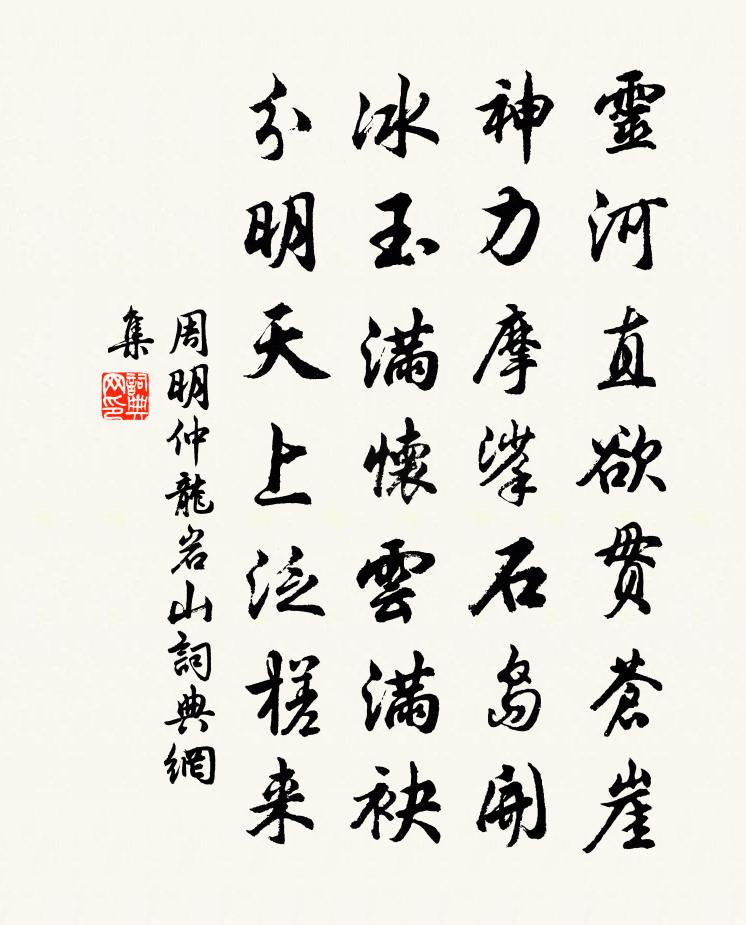 靈河直欲贯蒼崖
神力摩挲石島開
冰玉满懷雲满袂
分明天上泛槎来
周明仲龍岩山詞典網
集
詞典
网印